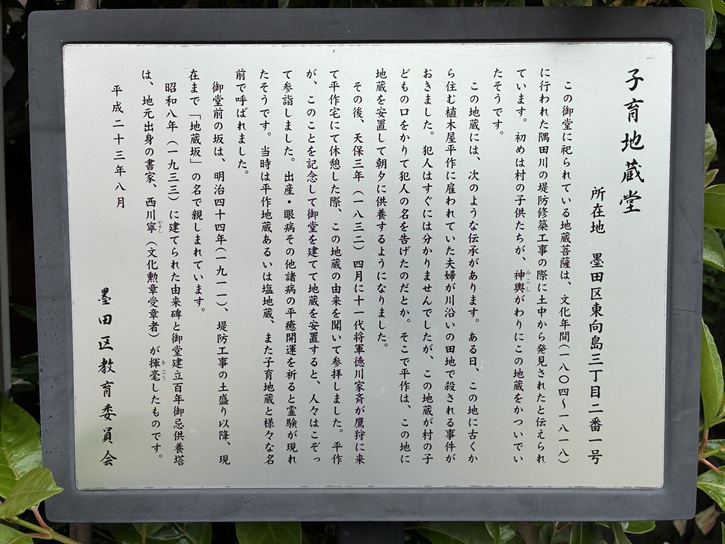 子育地蔵堂
所在地　墨田区東向島三丁目二番一号
この御堂に祀られている地蔵菩薩は、文化年間(一八〇四～一八一八)
に行われた隅田川の堤防修築工事の際に土中から発見されたと伝えられ
ています。初めは村の子供たちが、神輿がわりにこの地蔵をかついでい
たそうです。
この地蔵には、次のような伝承があります。ある日、この地に古くか
ら住む植木屋平作に雇われていた夫婦が川沿いの田地で殺される事件が
おきました。犯人はすぐには分かりませんでしたが、この地蔵が村の子
どもの口をかりて犯人の名を告げたのだとか。そこで平作は、この地に
地蔵を安置して朝夕に供養するようになりました。
その後、天保三年(一八三二)四月に十一代将軍徳川家斉が鷹狩に来
て平作宅にて休憩した際、この地蔵の由来を聞いて参拝しました。平作
が、このことを記念して御堂を建てて地蔵を安置すると、人々はこぞっ
て参詣しました。出産・眼病その他諸病の平癒開運を祈ると霊験が現れ
たそうです。当時は平作地蔵あるいは塩地蔵、また子育地蔵と様々な名
前で呼ばれました。
御堂前の坂は、明治四十四年(一九一一)、堤防工事の土盛り以降、現
在まで「地蔵坂」の名で親しまれています。
昭和八年(一九三三)に建てられた由来碑と御堂建立百年御忌供養塔
は、地元出身の書家、西川寧(文化勲章受章者)が揮毫したものです。
平成二十三年八月
墨田区教育委員会